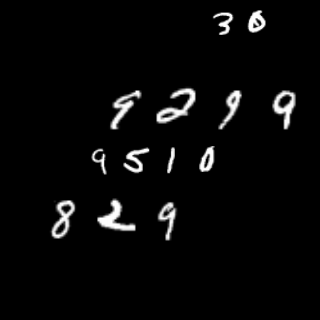 30
9299
9510
829